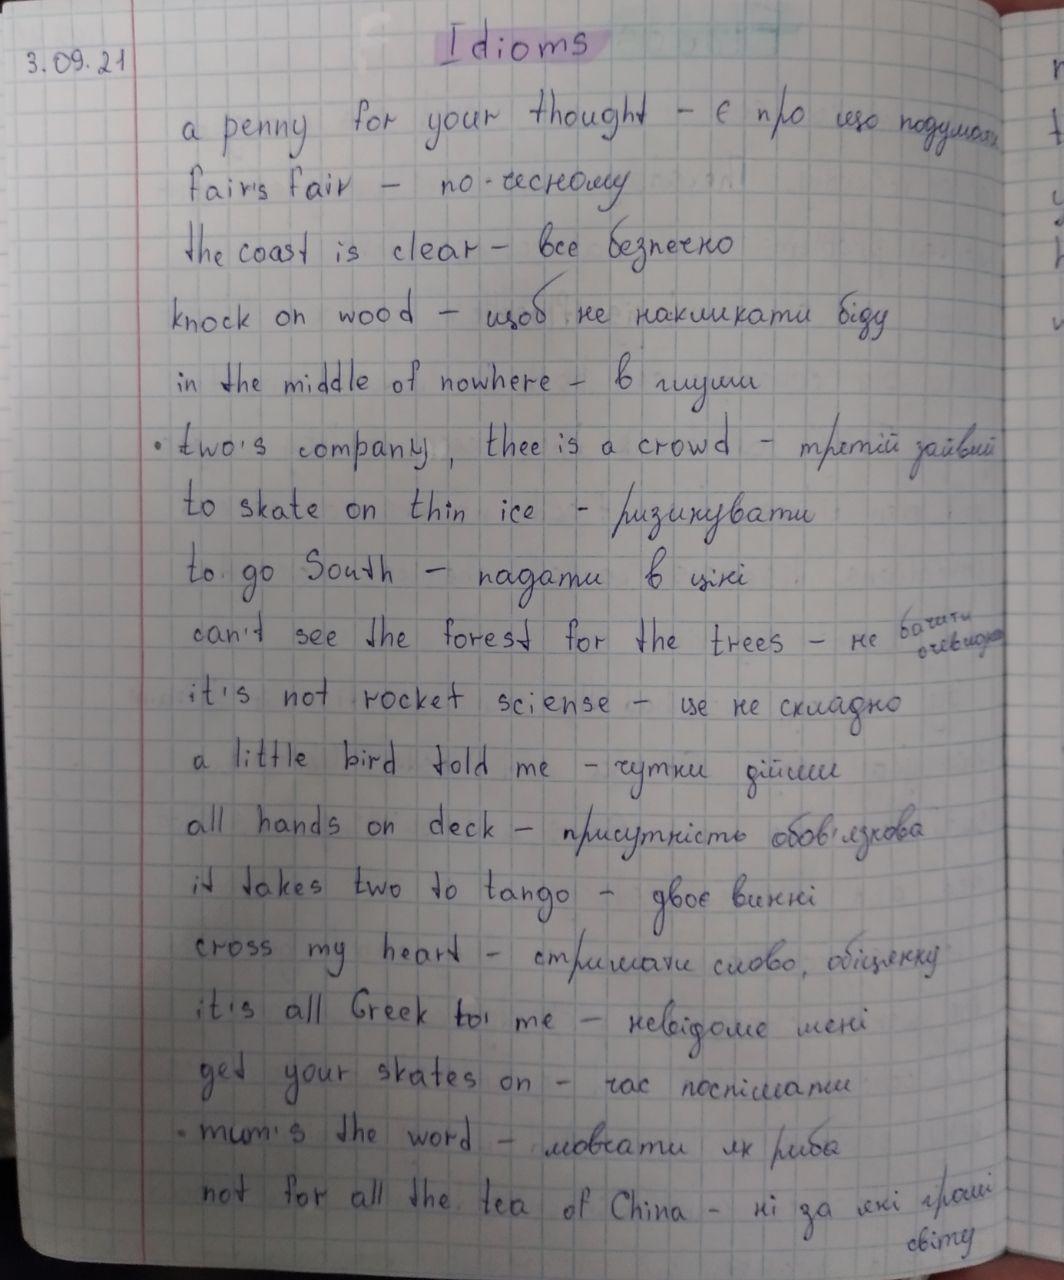 3.09.21 Idioms
a penny for your thought - є про що подумати
fair's fair - по-чесному
the coast is clear - все безпечно
knock on wood - щоб не накликати біду
in the middle of nowhere - в глуши
• two's company, thee is a crowd - третій зайвий
to skate on thin ice - ризикувати
to go South - падати в ціні
can't see the forest for the trees - не бачити
очевидно
it's not rocket sciense - це не складно
a little bird told me - чутки дійшли
all hands on deck - присутність обов'язкова
it takes two to tango - двоє винні
cross my heart - стримати слово, обіцянку
it's all Greek to me - невідоме мені
get your skates on - час поспішати
• mum's the word - мовчати як риба
not for all the tea of China - ні за які гроші
світу